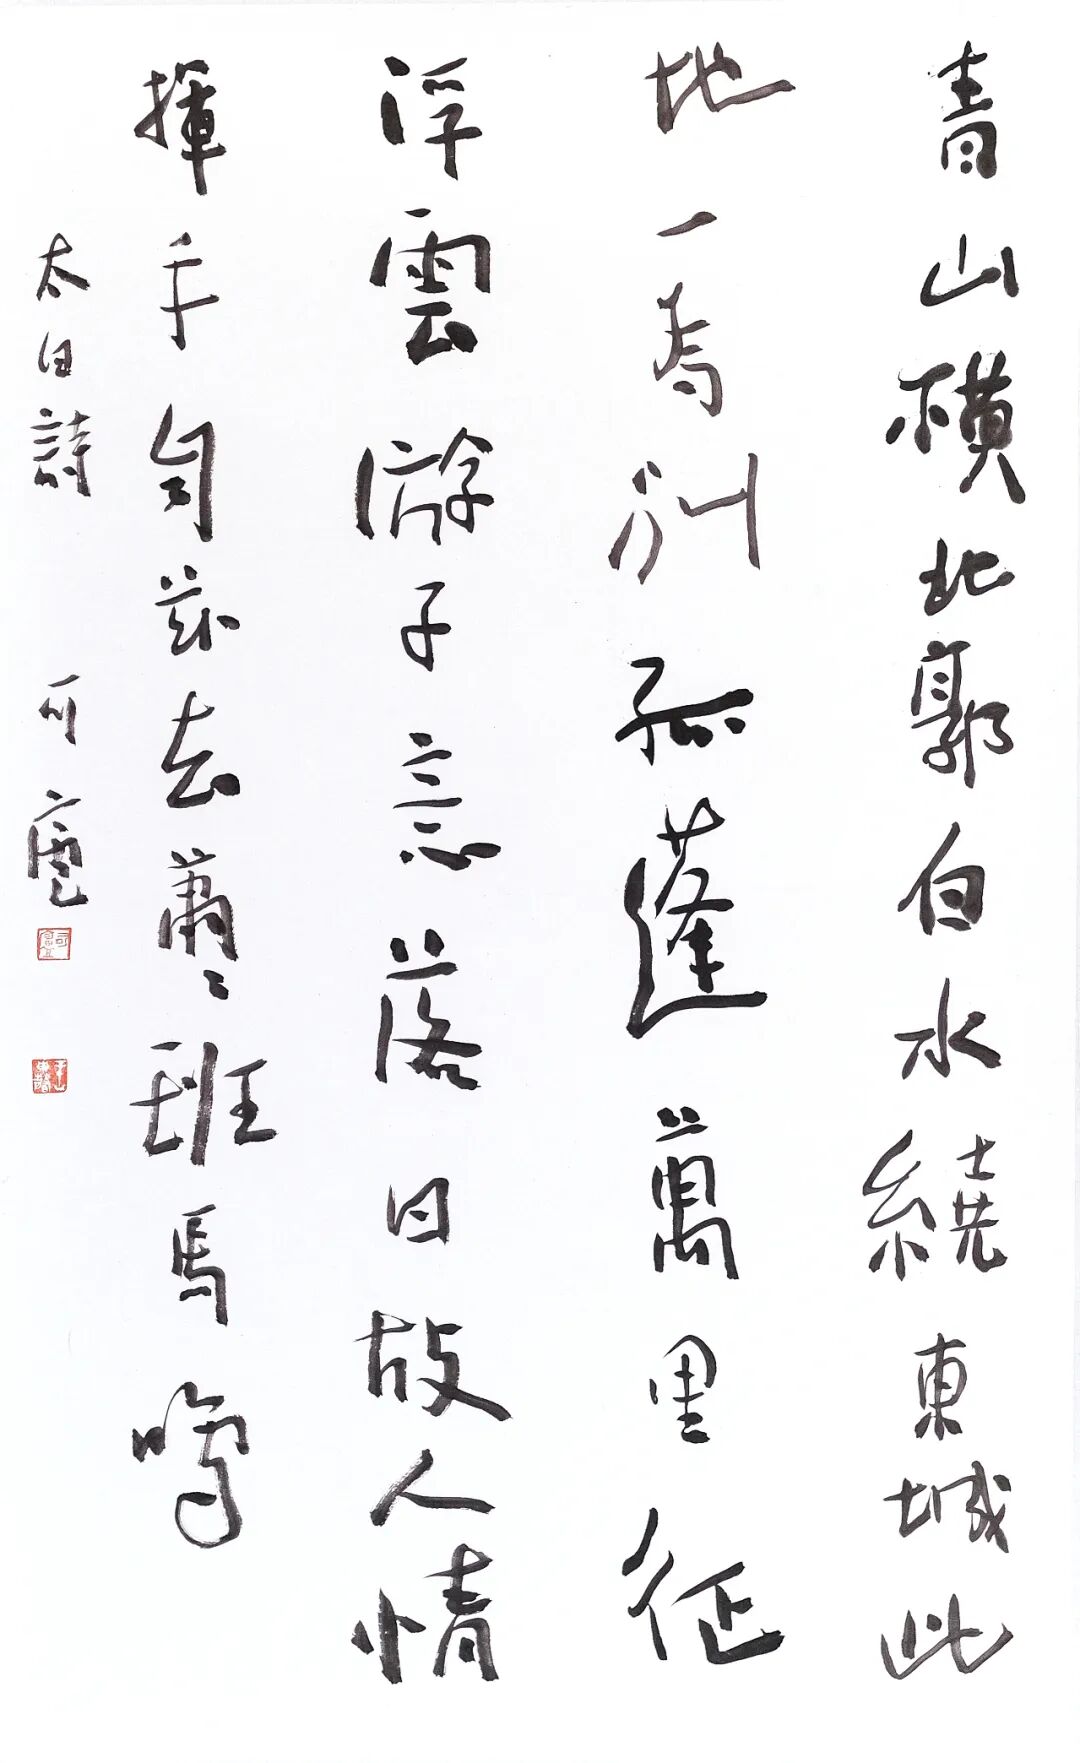 青山橫北郭白水繞東城此
地一為別孤蓬萬里征
浮雲游子意落日故人情
揮手自茲去蕭〻班馬鳴
太白詩 可廬